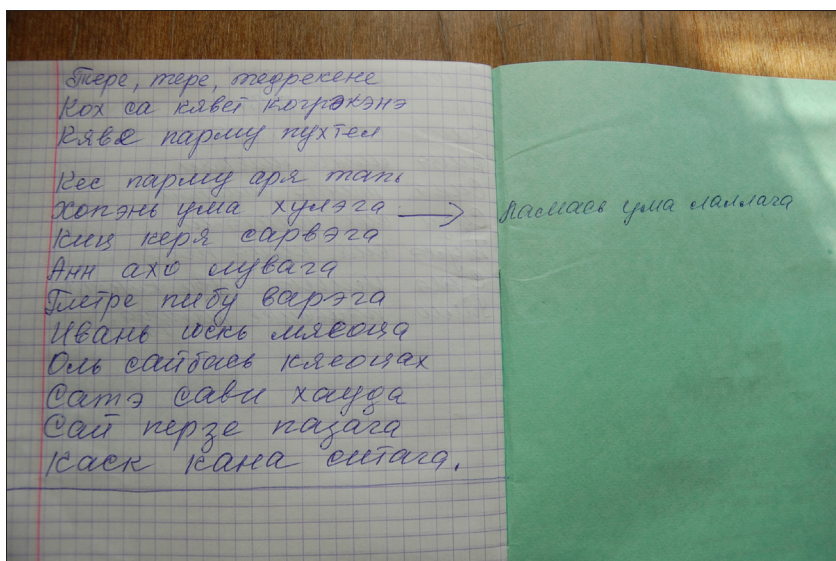 Тере, тере, тедрекене
Кох са кявет когрэкэнэ
Кявс парму пухтел
Кес парму аря тапь
Хопэнь ума хулэга → Ламась ума лаллага
Киц керя сарвэга
Анн ахо лувага
Петре пибу варэга
Ивань искь мясоца
Оль сайбась кясоцах
Сатэ сави хауда
Сай перзе пазага
Каск кана ситага.